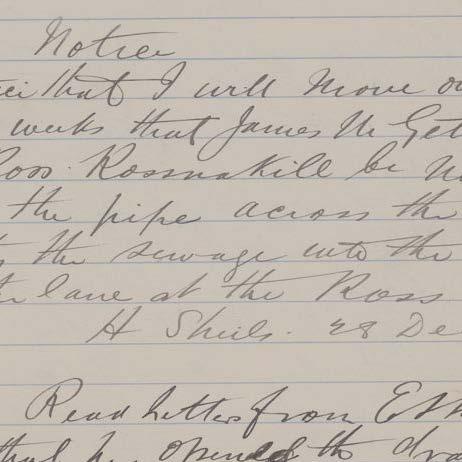 Notice
that I will Move
weeks that James Mc Get
Ross. Rossnakill be
the pipe across the
the sewage into the
lane at the Ross
H Sheils. 28 De
Read Letters from
that he opened the dra